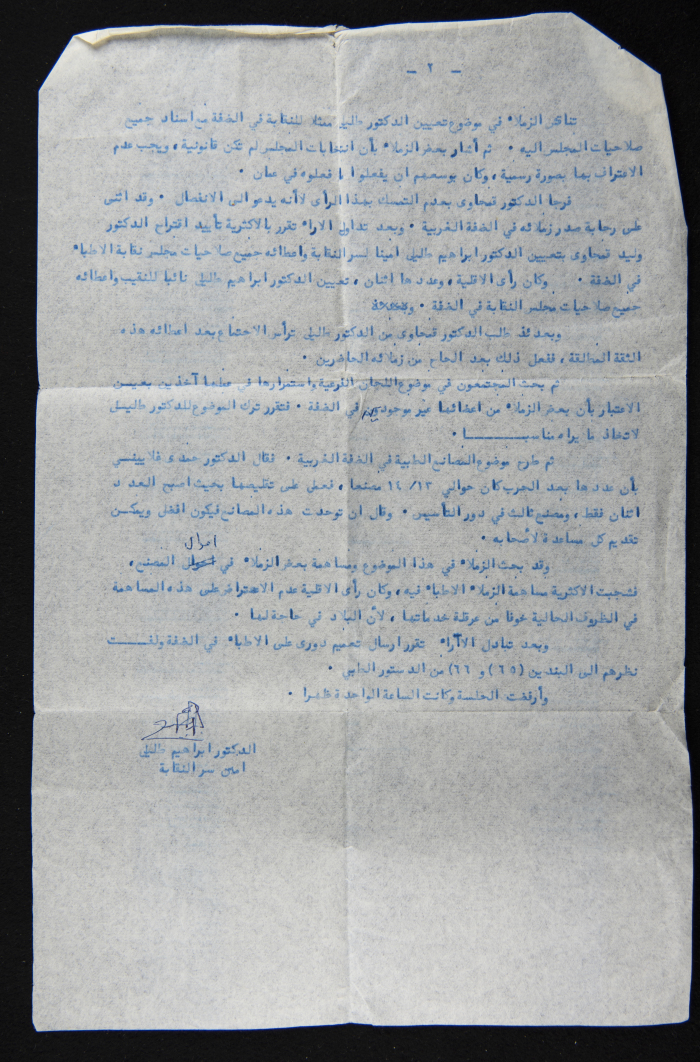 - ٢ -
تناقش الزملاء في موضوع تعيين الدكتور طليل ممثلا للنقابة في الضفة مع اسناد جميع
صلاحيات المجلس اليه . ثم أشار بعض الزملاء بأن انتخابات المجلس لم تكن قانونية ، ويجب عدم
الاعتراف بها بصورة رسمية ، وكان بوسعهم ان يفعلوا ما فعلوه في عمان .
فرجا الدكتور قمحاوى بعدم التمسك بهذا الرأى لأنه يدعو الى الانفصال . وقد اثنى
على رحابة صدر زملائه في الضفة الغربية . وبعد تداول الاراء تقرر بالاكثرية تأييد اقتراح الدكتور
وليد قمحاوى بتعيين الدكتور ابراهيم طليل امينا لسر النقابة واعطائه جميع صلاحيات مجلس نقابة الاطباء
في الضفة . وكان رأى الاقلية ، وعددها اثنان ، تعيين الدكتور ابراهيم طليل نائبا للنقيب واعطائه
جميع صلاحيات مجلس النقابة في الضفة .
وبعدئذ طلب الدكتور قمحاوى من الدكتور طليل ترأس الاجتماع بعد اعطائه هذه
الثقة المطلقة ، ففعل ذلك بعد الحاح من زملائه الحاضرين .
ثم بحث المجتمعون في موضوع اللجان الفرعية واستمرارها في عملها آخذين بعين
الاعتبار بأن بعض الزملاء من اعضائها غير موجودين في الضفة . فتقرر ترك الموضوع للدكتور طليل
لاتخاذ ما يراه مناسبـــا .
ثم طرح موضوع المصانع الطبية في الضفة الغربية . فقال الدكتور حمدى
بأن عددها بعد الحرب كان حوالي ١٣/ ١٤ مصنعا ، فعمل على تقليصها بحيث اصبح العدد
اثنان فقط ، ومصنع ثالث في دور التأسيس . وقال ان توحدت هذه المصانع فيكون افضل ويمكن
تقديم كل مساعدة لأصحابه .
وقد بحث الزملاء في هذا الموضوع ومساهمة بعض الزملاء في اموال المصنع ،
فشجبت الاكثرية مساهمة الزملاء الاطباء فيه ، وكان رأى الاقلية عدم الاعتراض على هذه المساهمة
في الظروف الحالية خوفا من عرقلة خدماتها ، لأن البلاد في حاجة لها .
وبعد تبادل الآراء تقرر ارسال تعميم دورى على الاطباء في الضفة ولفـــت
نظرهم الى البندين (٦٥) و (٦٦) من الدستور الطبي .
وأرفضت الجلسة وكانت الساعة الواحدة ظهرا .
الدكتور ابراهيم طليل
امين سر النقابة